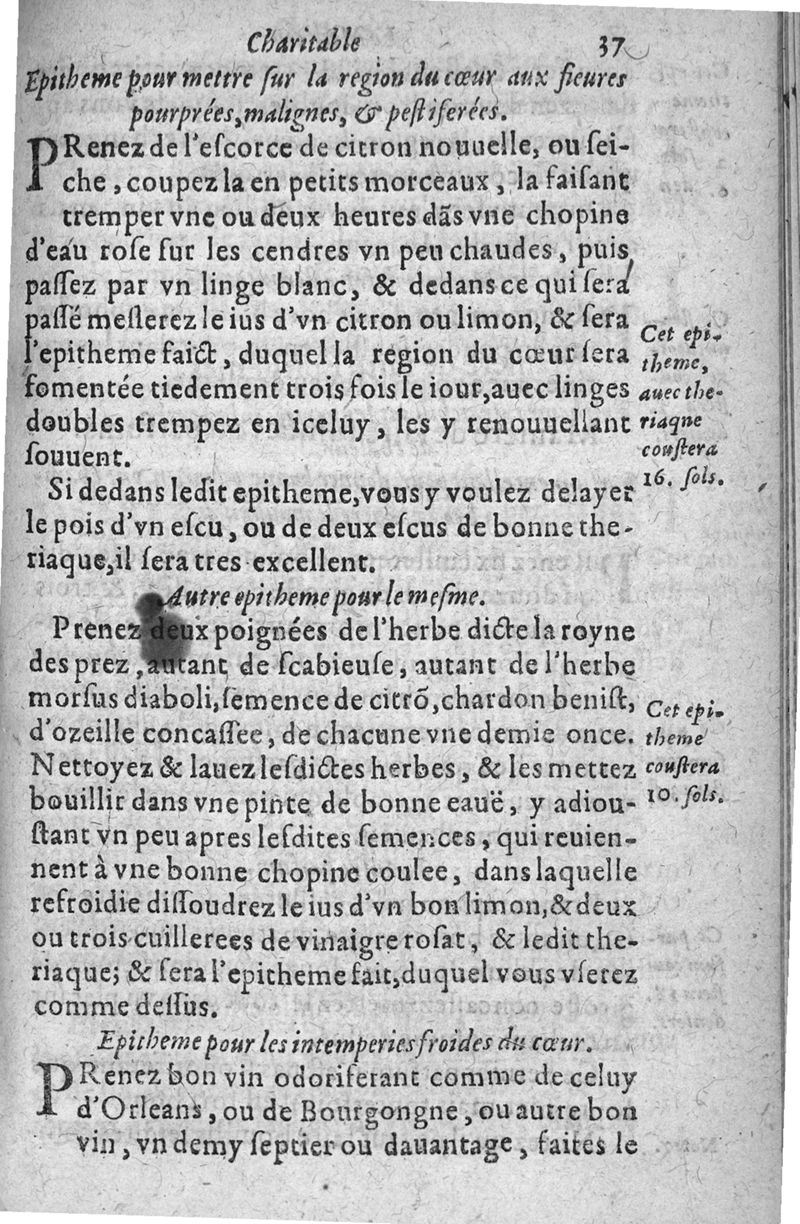 Charitable 37
Epitheme pour mettre ſur la region du cœur aux fieures
pourprées, malignes, & peſtiferées.
PRenez de l'eſcorce de citron nouuelle, ou ſei-
che, coupez la en petits morceaux, la faiſant
tremper vne ou deux heures dãs vne chopine
d'eau roſe ſur les cendres vn peu chaudes, puis
paſſez par vn linge blanc, & dedans ce qui ſera
paſſé meſlerez le ius d'vn citron ou limon, & ſera
l'epitheme faict, duquel la region du cœur ſera
fomentée tiedement trois fois le iour, auec linges
doubles trempez en iceluy, les y renouuellant
ſouuent.
Cet epi-
theme,
auec the-
riaqne
couſtera
16. ſols.
Si dedans ledit epitheme, vous y voulez delayer
le pois d'vn eſcu, ou de deux eſcus de bonne the-
riaque, il ſera tres excellent.
Autre epitheme pour le meſme.
Prenez deux poignées de l'herbe dicte la royne
des prez, autant de ſcabieuſe, autant de l'herbe
morſus diaboli, ſemence de citrõ, chardon beniſt,
d'ozeille concaſſee, de chacune vne demie once.
Nettoyez & lauez leſdictes herbes, & les mettez
bouillir dans vne pinte de bonne eauë, y adiou-
ſtant vn peu apres leſdites ſemences, qui reuien-
nent à vne bonne chopine coulee, dans laquelle
refroidie diſſoudrez le ius d'vn bon limon, & deux
ou trois cuillerees de vinaigre roſat, & ledit the-
riaque; & ſera l'epitheme fait, duquel vous vſerez
comme deſſus.
Cet epi-
theme
couſtera
10. ſols.
Epitheme pour les intemperies froides du cœur.
PRenez bon vin odoriferant comme de celuy
d'Orleans, ou de Bourgongne, ou autre bon
vin, vn demy ſeptier ou dauantage, faites le